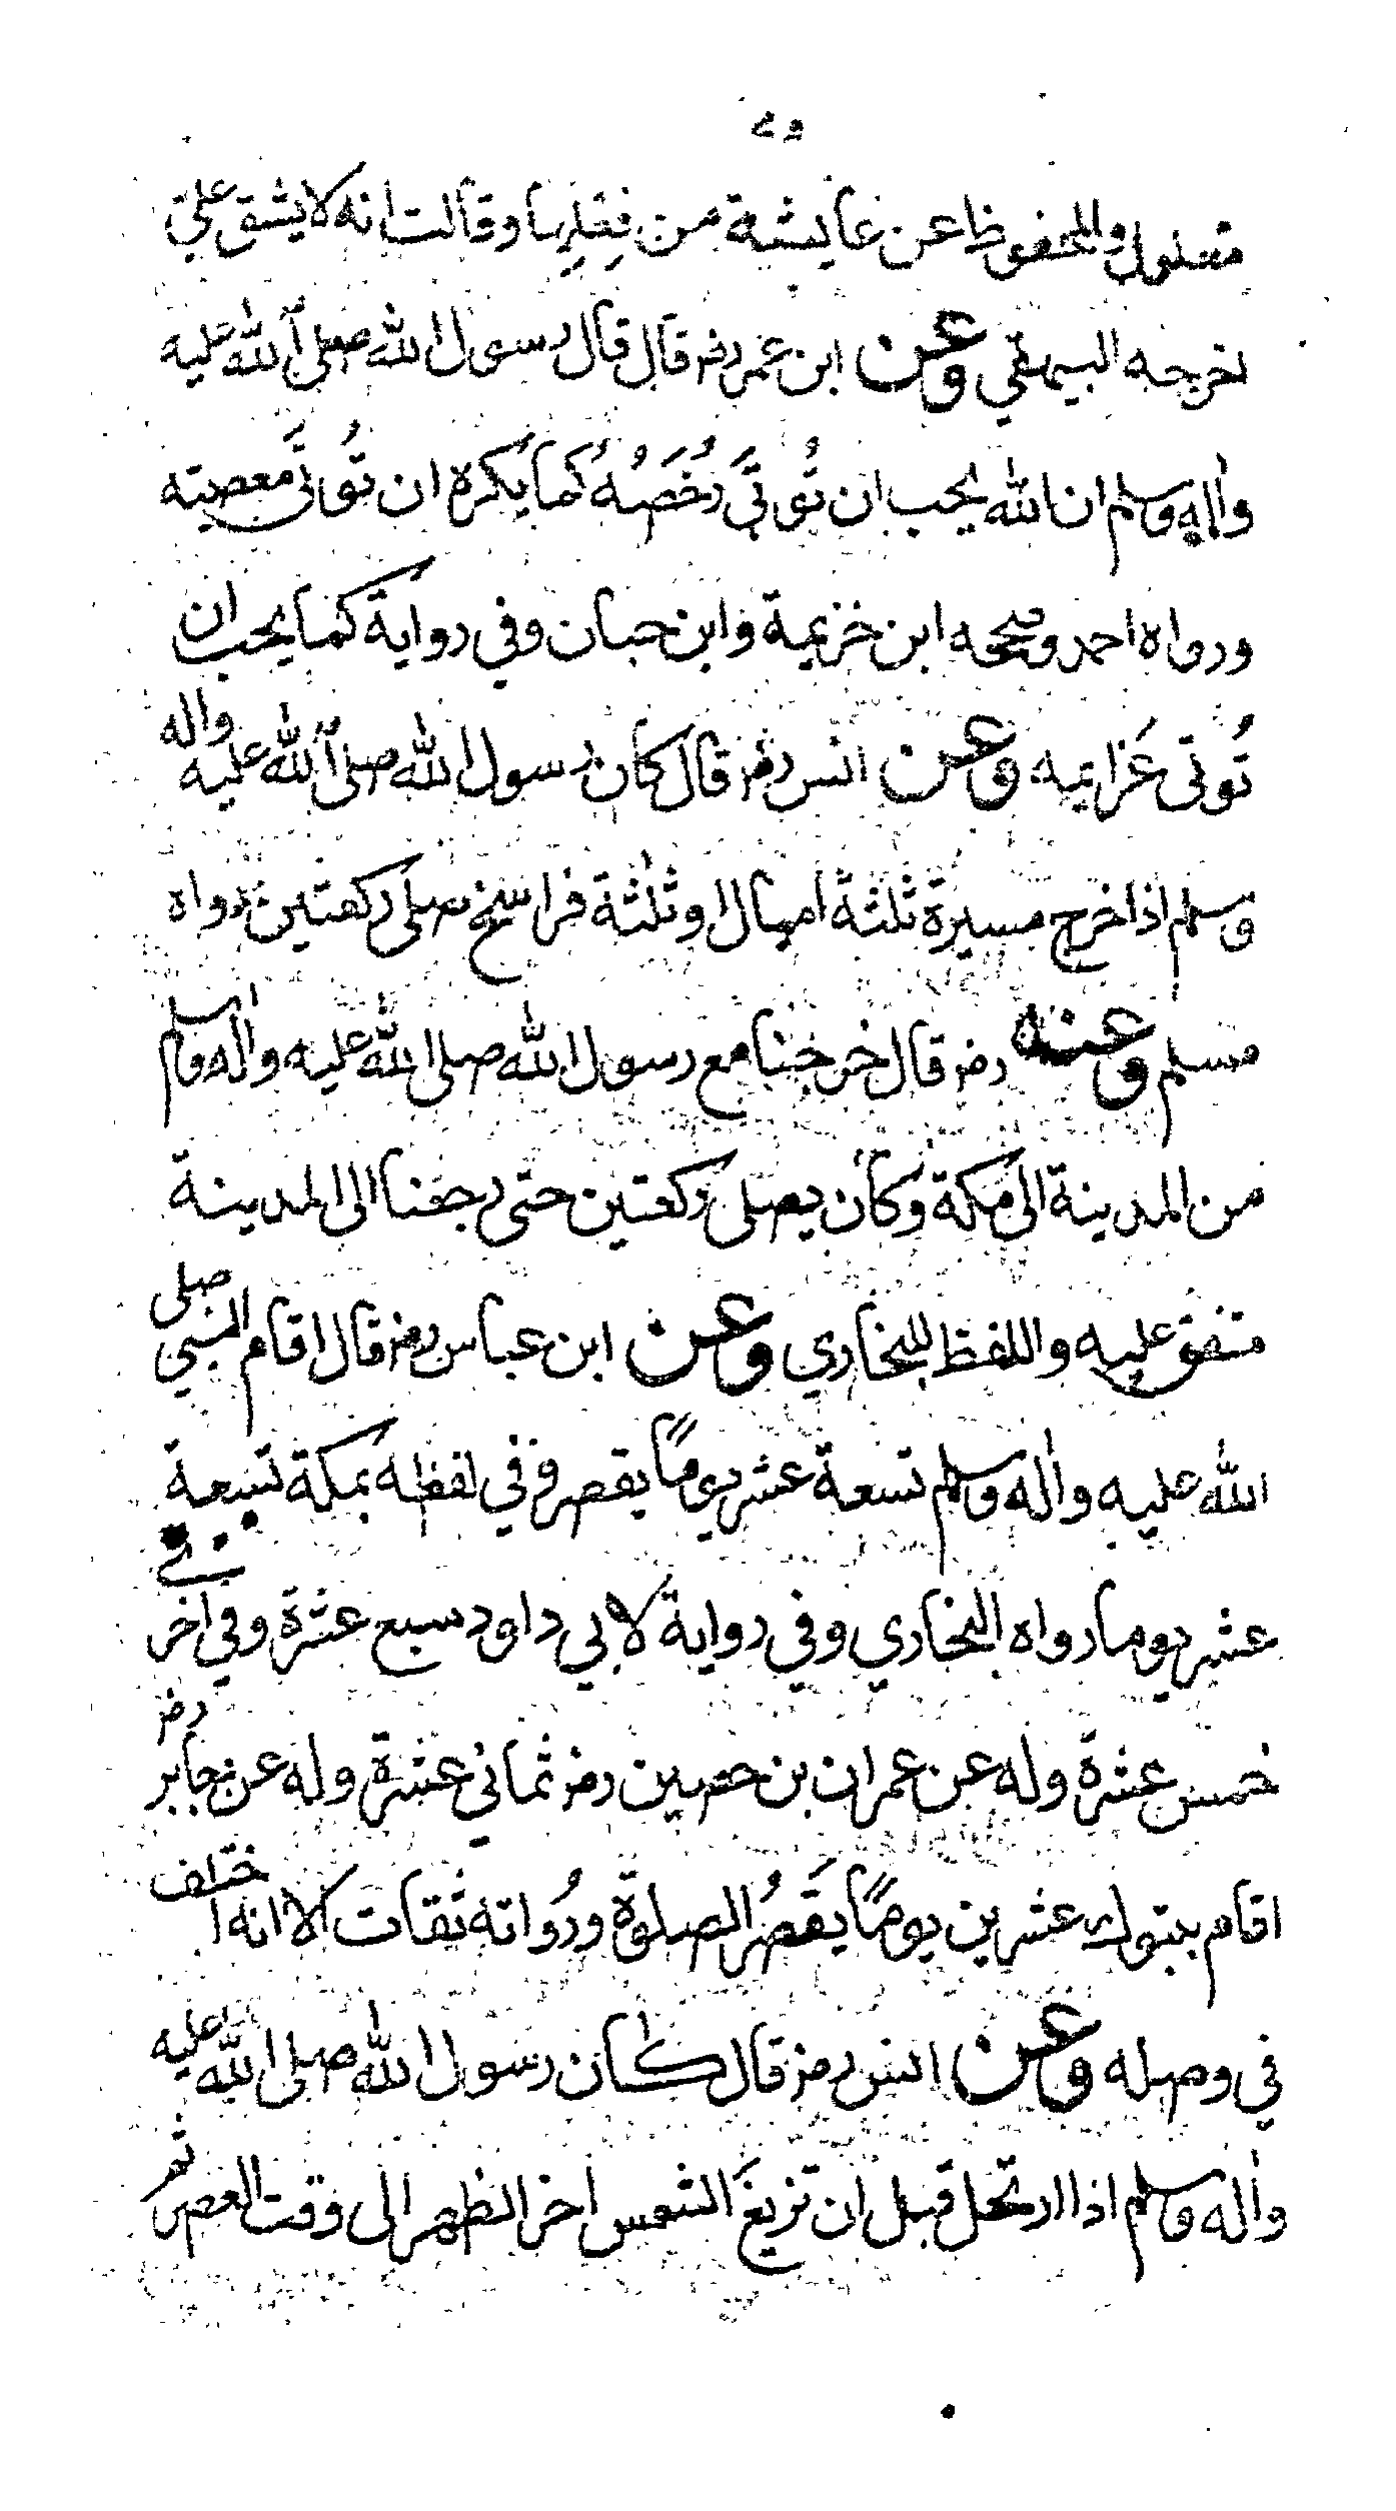 معلول والمحفوظ عن عايشة من فعلها وقالت انه لا يشق علي
اخرجه البيهقي وعن ابن عمر رض قال قال رسول الله صلى الله عليه
واله وسلم ان الله يحب ان تُوتَى رُخَصُهُ كما يكره ان تُوتَى معصيته
ورواه احمد وصححه ابن خزيمة وابن حبان وفي رواية كما يحب ان
تُوتى عَزايمه وعن انس رض قال كان رسول الله صلى الله عليه واله
وسلم اذا خرج مسيرة ثلثة اميال او ثلثة فراسخ صلى ركعتين رواه
مسلم وعنه رض قال خرجنا مع رسول الله صلى الله عليه واله وسلم
من المدينة الى مكة وكان يصلى ركعتين حتى رجعنا الى المدينة
متفق عليه واللفظ للبخاري وعن ابن عباس رض قال اقام النبي صلى
الله عليه واله وسلم تسعة عشر يومًا يقصر وفي لفظه بمكة تسعة
عشر يوما رواه البخاري وفي رواية لابي داود سبع عشرة وفي اخرى
خمس عشرة وله عن عمران بن حصين رض ثماني عشرة وله عن جابر رض
اقام بتبوك عشرين يومًا يَقصُرُ الصلوة ورُواته ثقات الا انه اختلف
في وصله وعن انس رض قال كان رسول الله صلى الله عليه
واله وسلم اذا ارتحل قبل ان تزيغَ الشمس اخر الظهر الى وقت العصر ثم